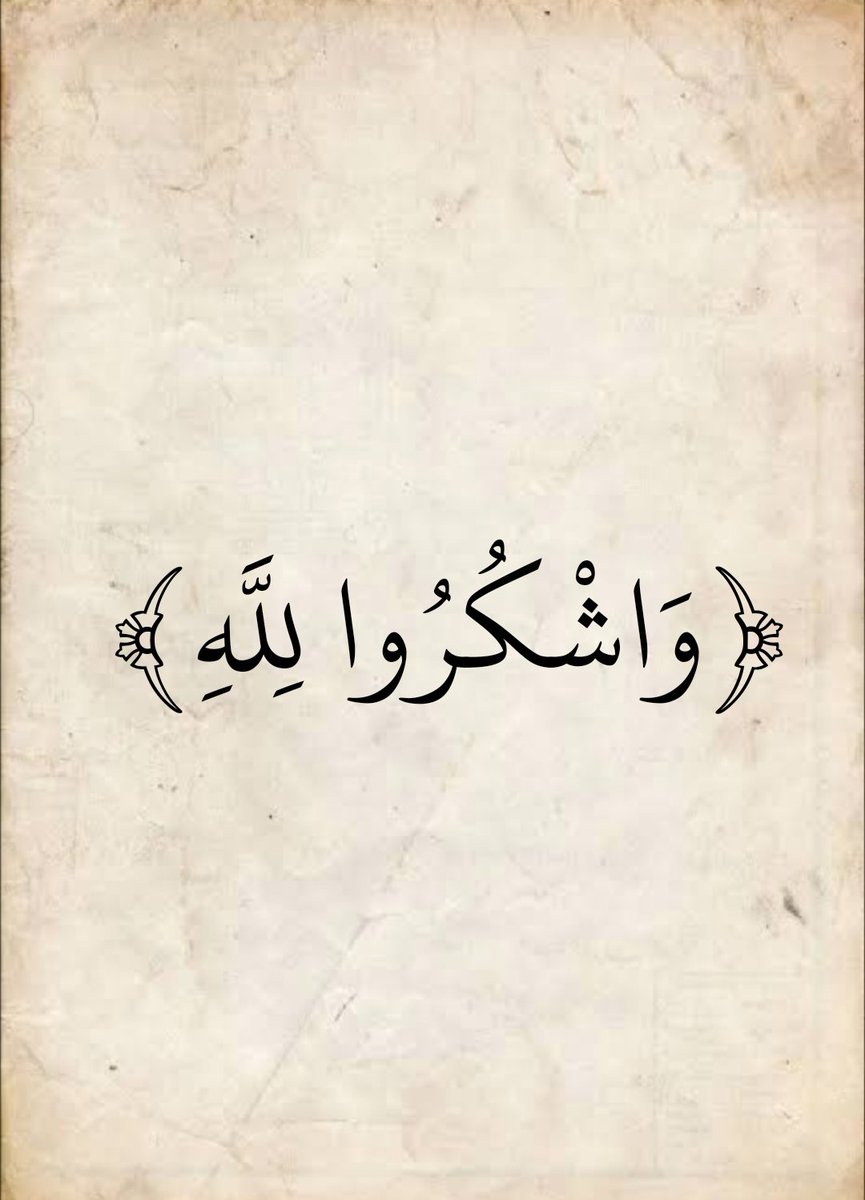 ﴿وَاشْكُرُوا لِلَّهِ﴾